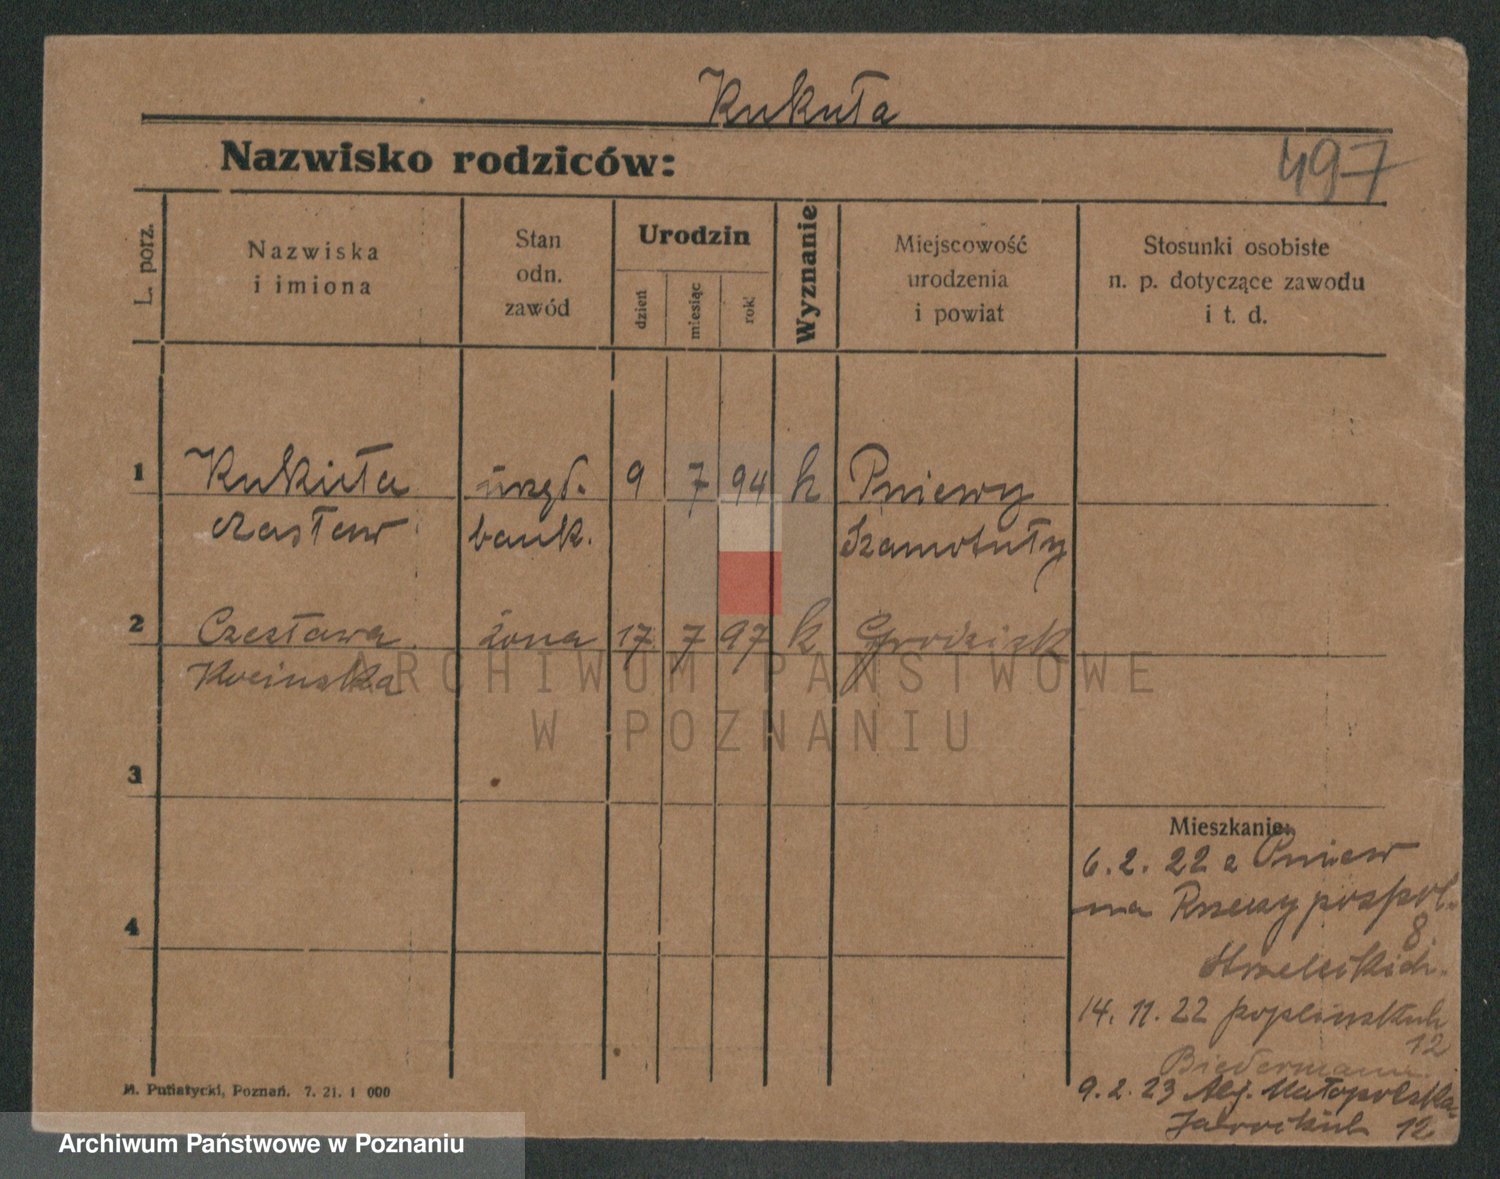 Kukuła
Nazwisko rodziców:
497
L. porz.
Nazwiska
i imiona
Stan
odn.
zawód
Urodzin
dzień
miesiąc
rok
Wyznanie
Miejscowość
urodzenia
i powiat
Stosunki osobiste
n. p. dotyczące zawodu
i t. d.
1
Kukuła
urzęd.
9
7
94
k
Pniewy
Czesław
bank.
Szamotuły
2
Czesława
żona
17
7
97
k
Grodzisk
ARCHIWUM PAŃSTWOWE
W POZNANIU
3
Mieszkanie:
6. 2. 22 z Pniew
na Rzeczypospol.
8
4
14. 11. 22 poplińskich
12
Biedermann
9. 2. 23 Alj. Małopolska
12
M. Putiatycki, Poznań. 7. 21. 1 000
Archiwum Państwowe w Poznaniu